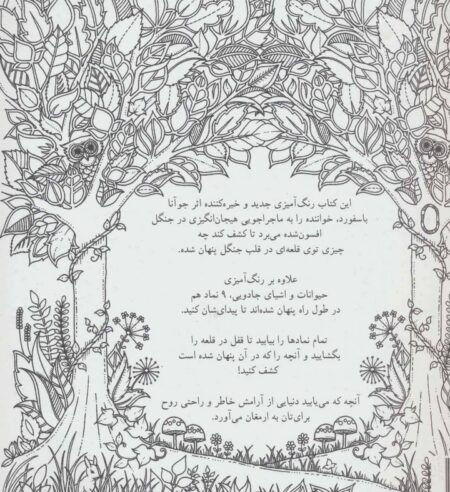 این کتاب رنگ‌آمیزی جدید و خیره‌کننده اثر جوآنا
باسفورد، خواننده را به ماجراجویی هیجان‌انگیزی در جنگل
افسون‌شده می‌برد تا کشف کند چه
چیزی توی قلعه‌ای در قلب جنگل پنهان شده.
علاوه بر رنگ‌آمیزی
حیوانات و اشیای جادویی، ۹ نماد هم
در طول راه پنهان شده‌اند تا پیدای‌شان کنید.
تمام نمادها را بیابید تا قفل در قلعه را
بگشایید و آنچه را که در آن پنهان شده است
کشف کنید!
آنچه که می‌یابید دنیایی از آرامش خاطر و راحتی روح
برای‌تان به ارمغان می‌آورد.